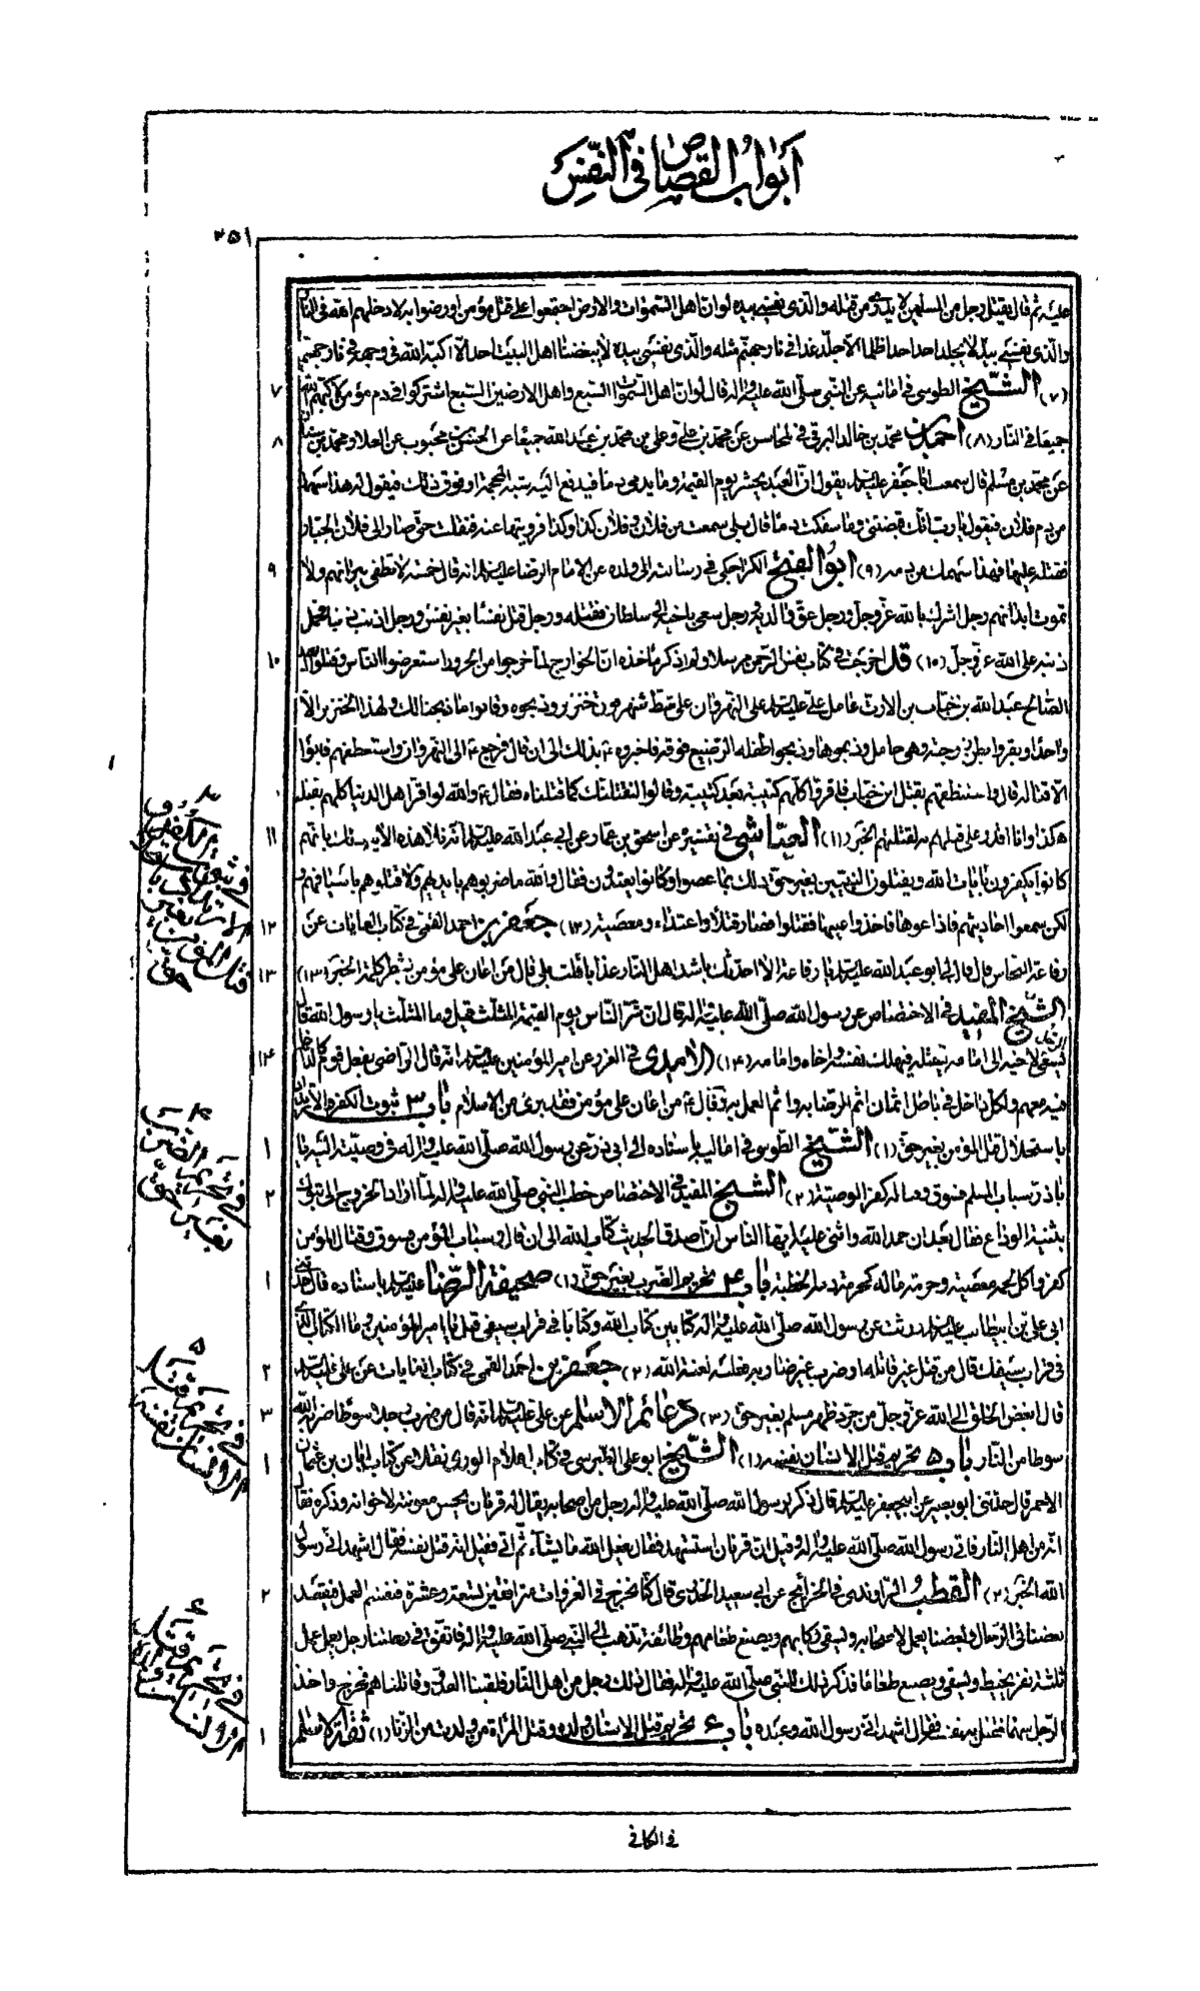 أبواب القصاص في النفس
٢٥١
عليه ثم قال يقتل رجل من المسلمين لا يدرى من قتله والذى نفسي بيده لو ان اهل السموات والارض اجتمعوا على قتل مؤمن او رضوا به لادخلهم الله في النار
والذى نفسي بيده لا يجلد احد احدا ظلما الا جلد غدا في نار جهنم مثله والذى نفسي بيده لا يبغضنا اهل البيت احد الا اكبه الله في وجهه في نار جهنم
(٧) الشيخ الطوسي في اماليه عن النبي صلى الله عليه واله قال لو ان اهل السموات السبع واهل الارضين السبع اشتركوا في دم مؤمن لاكبهم الله ٧
جميعا في النار (٨) احمد بن محمد بن خالد البرقي في المحاسن عن محمد بن علي وعلي بن محمد بن عبد الله جميعا عن الحسن بن محبوب عن العلاء ومحمد بن سنان ٨
عن محمد بن مسلم قال سمعت ابا جعفر عليه السلام يقول ان العبد يحشر يوم القيمة وما يدمى دما فيدفع اليه شبه المحجمة او فوق ذلك فيقول له هذا سهمك
من دم فلان فيقول يا رب انك قبضتني وما سفكت دما قال بلى سمعت من فلان بن فلان كذا وكذا فرويتها عنه فنقلت حتى صار الى فلان الجبار
فقتله عليها فهذا سهمك من دمه (٩) ابو الفتح الكراجكي في رسالته الى ولده عن الامام الرضا عليه السلام انه قال خمسة لا تطفى نيرانهم ولا ٩
تموت ابدانهم رجل اشرك بالله عز وجل ورجل عق والديه ورجل سعى باخيه الى سلطان فقتله ورجل قتل نفسا بغير نفس ورجل اذنب ذنبا فحمل
ذنبه على الله عز وجل (١٠) قد اخرجت في كتاب نفس الرحمن مرسلا ولم اذكر مأخذه ان الخوارج لما خرجوا من الحروراء استعرضوا الناس وقتلوا العبد ١٠
الصالح عبد الله بن خباب بن الارت عامل علي عليه السلام على النهروان على شط نهر فوق خنزير وذبحوه وقالوا ما ذبحنا لك ولهذا الخنزير الا
واحدا وبقروا بطن زوجته وهي حامل وذبحوها وذبحوا طفله الرضيع فوقه فاخبروه ع بذلك الى ان قال فرجع ع الى النهروان واستعطفهم فابوا
الا قتاله قال واستنطقهم بقتل ابن خباب فاقروا كلهم كتيبة بعد كتيبة وقالوا لنقتلنك كما قتلناه فقال ع والله لو اقر اهل الدنيا كلهم بقتله
هكذا وانا اقدر على قتلهم به لقتلتهم الخبر (١١) العياشي في تفسيره عن اسحق بن عمار عن ابي عبد الله عليه السلام انه تلا هذه الاية ذلك بانهم ١١
كانوا يكفرون بايات الله ويقتلون النبيين بغير حق ذلك بما عصوا وكانوا يعتدون فقال والله ما ضربوهم بايديهم ولا قتلوهم باسيافهم و
لكن سمعوا احاديثهم فاذاعوها فاخذوا عليها فقتلوا فصار قتلا واعتداء ومعصية (١٢) جعفر بن احمد القمي في كتاب الغايات عن ١٢
رفاعة النخاس قال قال لي ابو عبد الله عليه السلام يا رفاعة الا احدثك باشد اهل النار عذابا قلت بلى قال من اعان على مؤمن بشطر كلمة الخبر (١٣) ١٣
الشيخ المفيد في الاختصاص عن رسول الله صلى الله عليه واله قال ان شر الناس يوم القيمة المثلث قيل وما المثلث يا رسول الله قال
الرجل يسعى لاخيه الى امامه فيقتله فيهلك نفسه واخاه وامامه (١٤) الآمدي في الغرر عن امير المؤمنين عليه السلام انه قال الراضي بفعل قوم كالداخل ١٤
فيه معهم ولكل داخل في باطل اثمان اثم الرضا به واثم العمل به وقال ع من اعان على مؤمن فقد برئ من الاسلام باب ٣ ثبوت الكفر والارتداد
باستحلال قتل المؤمن بغير حق (١) الشيخ الطوسي في اماليه باسناده الى ابي ذر عن رسول الله صلى الله عليه واله في وصيته اليه يا ١
با ذر سباب المسلم فسوق وقتاله كفر الوصية (٢) الشيخ المفيد في الاختصاص خطب النبي صلى الله عليه واله لما اراد الخروج الى تبوك ٢
بثنية الوداع فقال بعد ان حمد الله واثنى عليه ايها الناس ان اصدق الحديث كتاب الله الى ان قال وسباب المؤمن فسوق وقتال المؤمن
كفر واكل لحمه معصية وحرمة ماله كحرمة دمه الخطبة باب ٤ تحريم الضرب بغير حق (١) صحيفة الرضا عليه السلام باسناده قال حدثني ١
ابي علي بن ابيطالب عليه السلام ورثت عن رسول الله صلى الله عليه واله كتابين كتاب الله وكتابا في قراب سيفي قيل يا امير المؤمنين وما الكتاب الذي
في قراب سيفك قال من قتل غير قاتله او ضرب غير ضاربه فعليه لعنة الله (٢) جعفر بن احمد القمي في كتاب الغايات عن علي عليه السلام ٢
قال ابغض الخلق الى الله عز وجل من جرد ظهر مسلم بغير حق (٣) دعائم الاسلام عن علي عليه السلام انه قال من ضرب رجلا سوطا ضربه الله ٣
سوطا من النار باب ٥ تحريم قتل الانسان نفسه (١) الشيخ ابو علي الطبرسي في كتاب اعلام الورى نقلا عن كتاب ابان بن عثمان ١
الاحمر قال حدثني ابو بصير عن ابي جعفر عليه السلام قال ذكر لرسول الله صلى الله عليه واله رجل من اصحابه يقال له قزمان بحسن معونته لاخوانه وذكوه فقال
انه من اهل النار فاتى رسول الله صلى الله عليه واله وقيل ان قزمان استشهد فقال يفعل الله ما يشاء ثم اتى فقيل انه قتل نفسه فقال اشهد اني رسول
الله الخبر (٢) القطب الراوندي في الخرائج عن ابي سعيد الخدري قال كنا نخرج في الغزوات مترافقين تسعة وعشرة فنقسم العمل فيقعد ٢
بعضنا في الرحال وبعضنا يعمل لاصحابه ويسقي ركابهم ويصنع طعامهم وطائفة تذهب الى النبي صلى الله عليه واله فاتفق في رحلتنا رجل يعمل عمل
ثلثة نفر يخيط ويسقي ويصنع طعاما فذكر ذلك للنبي صلى الله عليه واله فقال ذلك رجل من اهل النار فلقينا العدو وقاتلناهم فخرج واخذ
الرجل سهما فقتل به نفسه فقال اشهد اني رسول الله وعبده باب ٦ تحريم قتل الانسان ولده وقتل المرأة من ولدت من الزنا (١) ثقة الاسلام ١
٣ في ثبوت الكفر والارتداد باستحلال قتل المؤمن بغير حق
٤ في تحريم الضرب بغير حق
٥ في تحريم قتل الانسان نفسه
٦ في تحريم قتل الانسان ولده
في الكافي